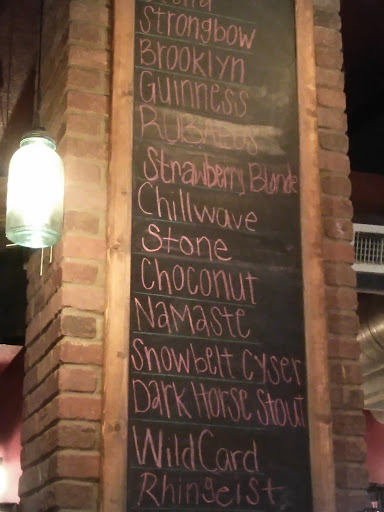 Strongbow
Brooklyn
Guinness
RUBAEUS
Strawberry Blonde
Chillwave
Stone
Choconut
Namaste
Snowbelt Cyser
Dark Horse Stout
WildCard
Rhingeist